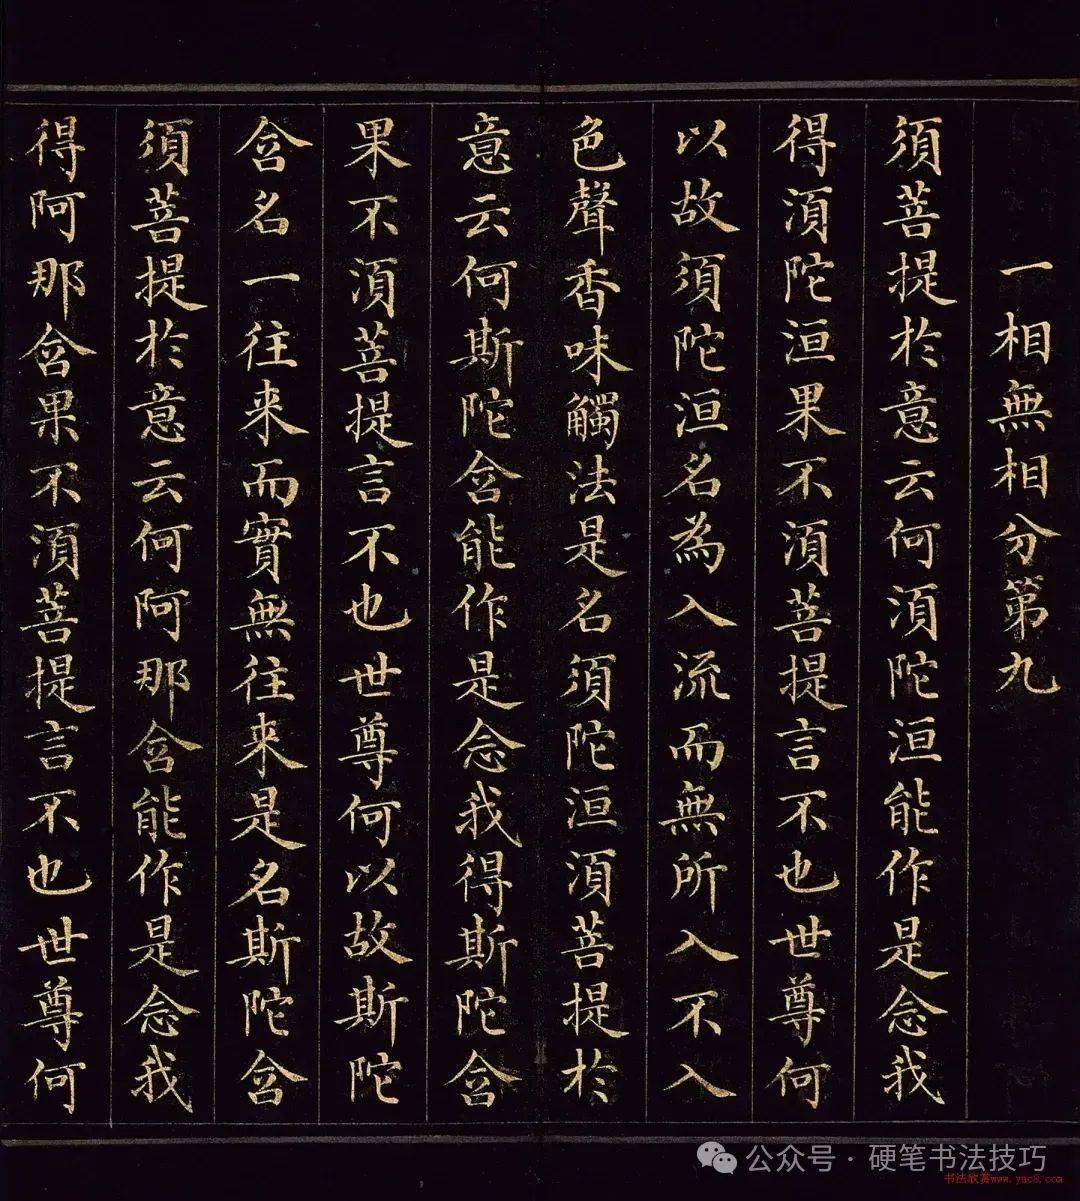 一相無相分第九
須菩提於意云何須陀洹能作是念我
得須陀洹果不須菩提言不也世尊何
以故須陀洹名為入流而無所入不入
色聲香味觸法是名須陀洹須菩提於
意云何斯陀含能作是念我得斯陀含
果不須菩提言不也世尊何以故斯陀
含名一往来而實無往来是名斯陀含
須菩提於意云何阿那含能作是念我
得阿那含果不須菩提言不也世尊何
公众号·硬笔书法技巧
书法欣赏www.yac8.com